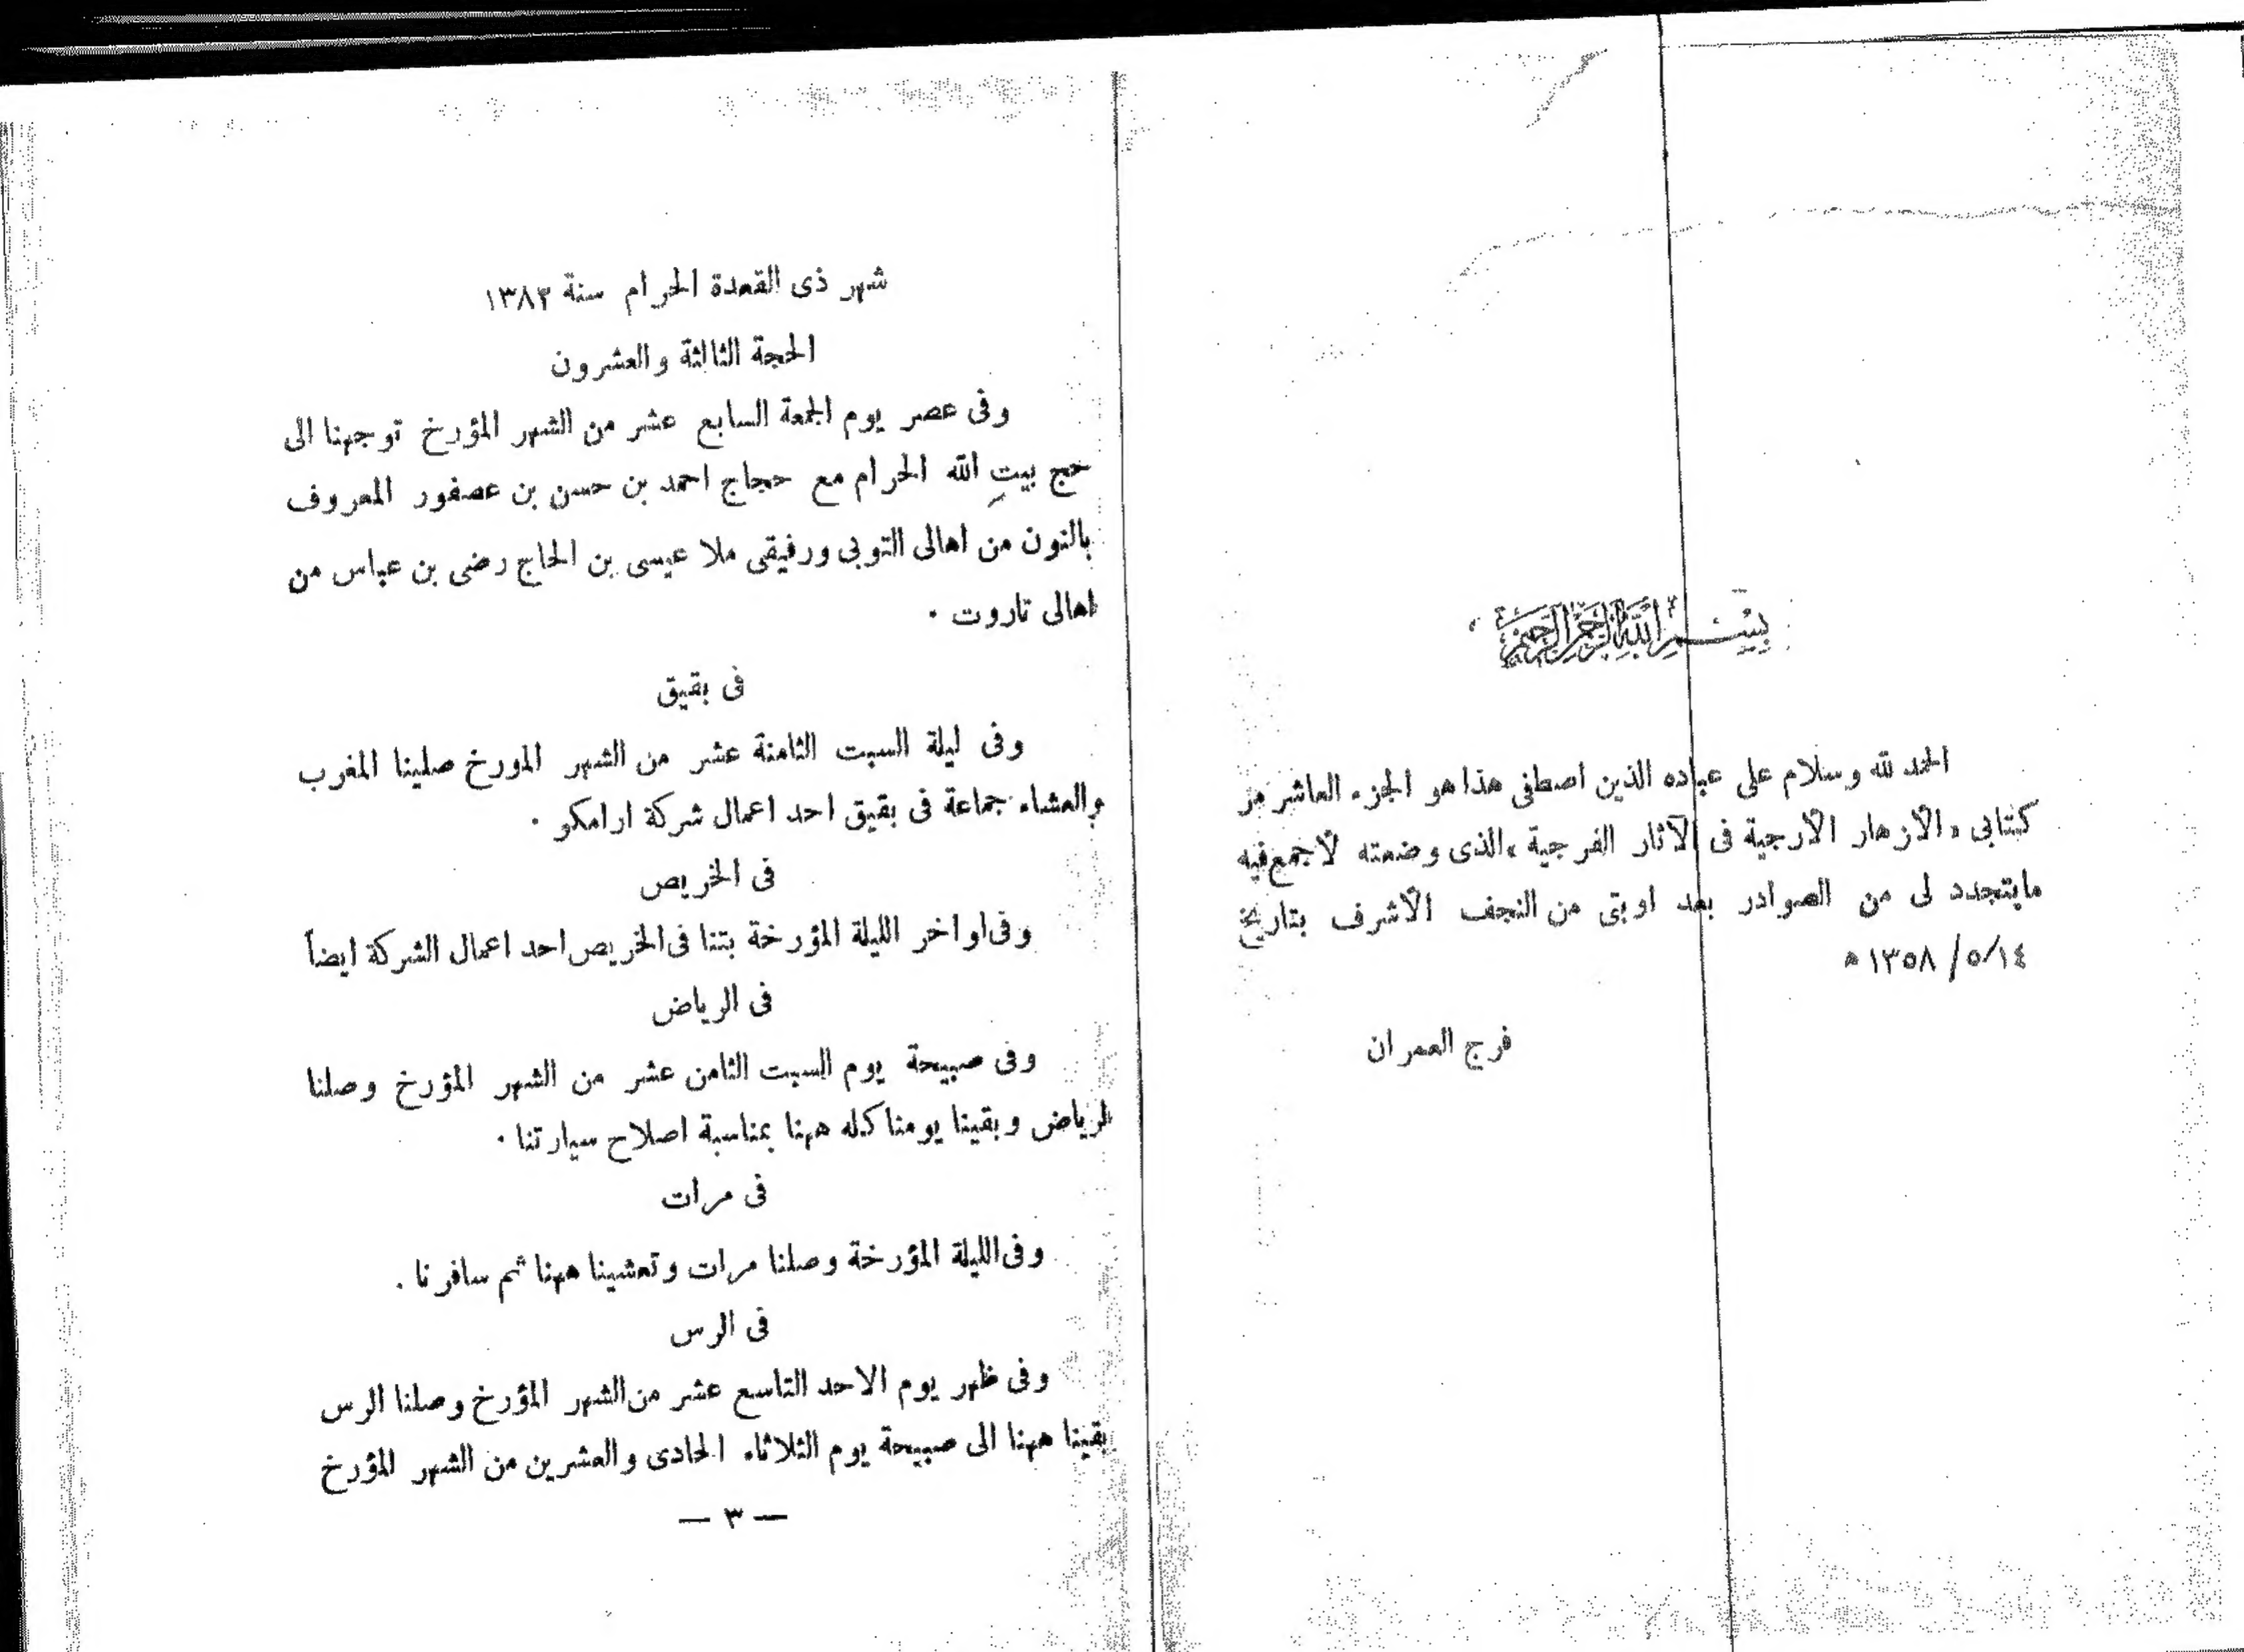 بسم الله الرحمن الرحيم
الحمد لله وسلام على عباده الذين اصطفى هذا هو الجزء العاشر من
كتابى «الأزهار الأرجية فى الآثار الفرجية» الذى وضعته لأجمع فيه
مايتجدد لى من الصوادر بعد اوبتى من النجف الأشرف بتاريخ
١٤/٥/ ١٣٥٨ ه
فرج العمران
شهر ذى القعدة الحرام سنة ١٣٨٣
الحجة الثالثة والعشرون
وفى عصر يوم الجمعة السابع عشر من الشهر المؤرخ توجهنا الى
حج بيتِ الله الحرام مع حجاج احمد بن حسن بن عصفور المعروف
بالنون من اهالى التوبى ورفيقى ملا عيسى بن الحاج رضى بن عباس من
اهالى تاروت .
فى بقيق
وفى ليلة السبت الثامنة عشر من الشهر المورخ صلينا المغرب
والعشاء جماعة فى بقيق احد اعمال شركة ارامكو .
فى الخريص
وفى اواخر الليلة المؤرخة بتنا فى الخريص احد اعمال الشركة ايضاً
فى الرياض
وفى صبيحة يوم السبت الثامن عشر من الشهر المؤرخ وصلنا
لرياض وبقينا يومنا كله ههنا بمناسبة اصلاح سيارتنا .
فى مرات
وفى الليلة المؤرخة وصلنا مرات وتعشينا ههنا ثم سافرنا .
فى الرس
وفى ظهر يوم الاحد التاسع عشر من الشهر المؤرخ وصلنا الرس
بقينا ههنا الى صبيحة يوم الثلاثاء الحادى والعشرين من الشهر المؤرخ
— ٣ —